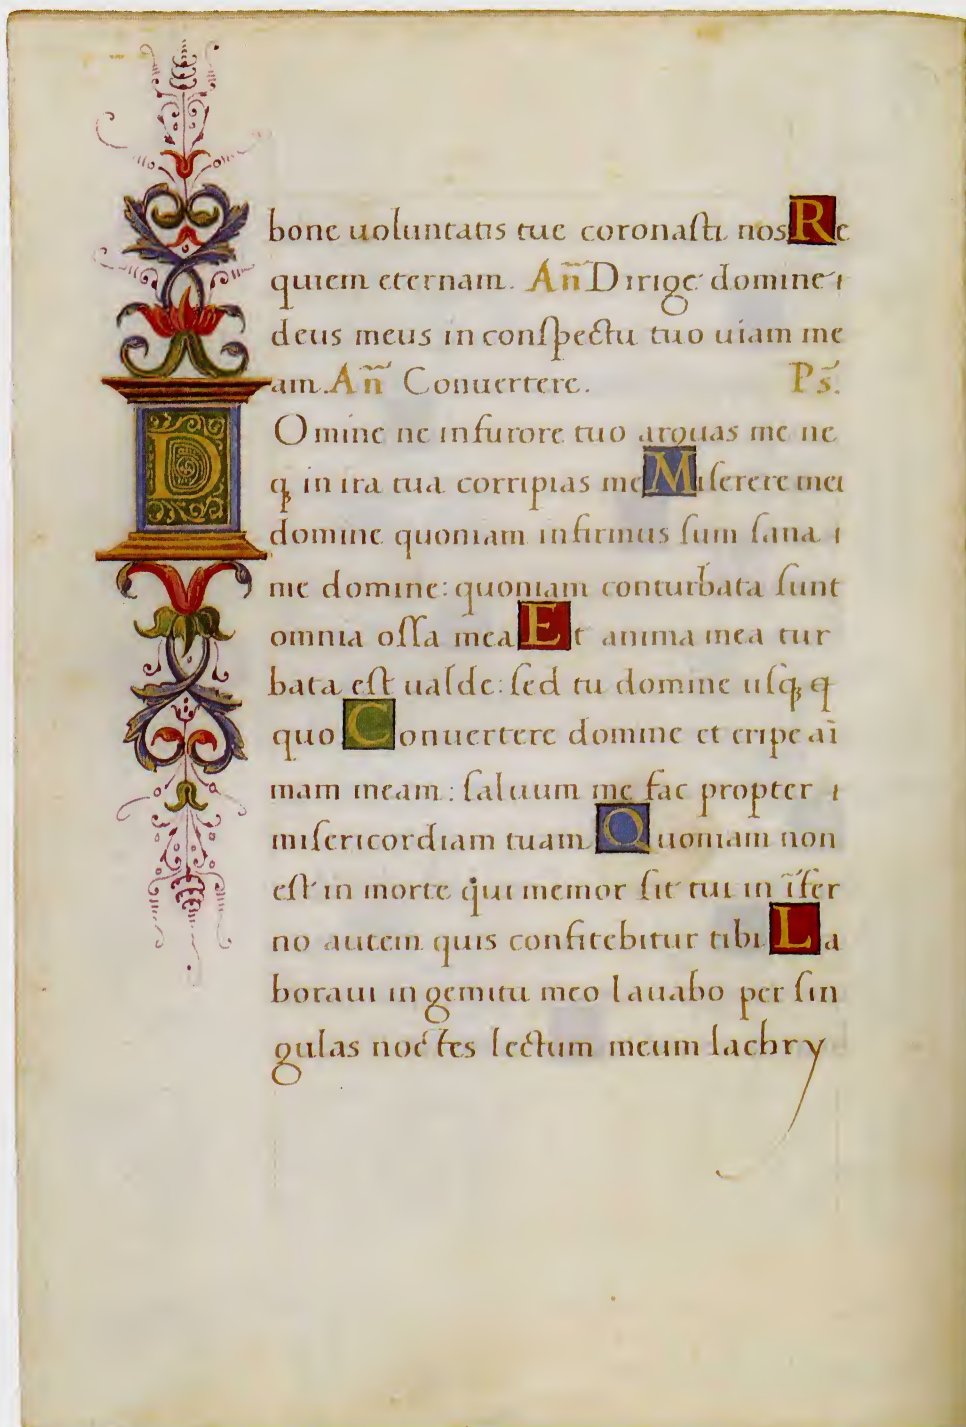 bone uoluntatis tue coronasti nos Re
quiem eternam. An̄ Dirige domine
deus meus in conspectu tuo uiam me
am. An̄ Conuertere. Ps̄.
D Omine ne in furore tuo arguas me ne
q̨ in ira tua corripias me Miserere mei
domine quoniam infirmus sum sana
me domine: quoniam conturbata sunt
omnia ossa mea Et anima mea tur
bata est ualde: sed tu domine usq̨ q
quo Conuertere domine et eripe aī
mam meam: saluum me fac propter
misericordiam tuam Quoniam non
est in morte qui memor sit tui in īfer
no autem quis confitebitur tibi La
boraui in gemitu meo lauabo per sin
gulas noctes lectum meum lachry